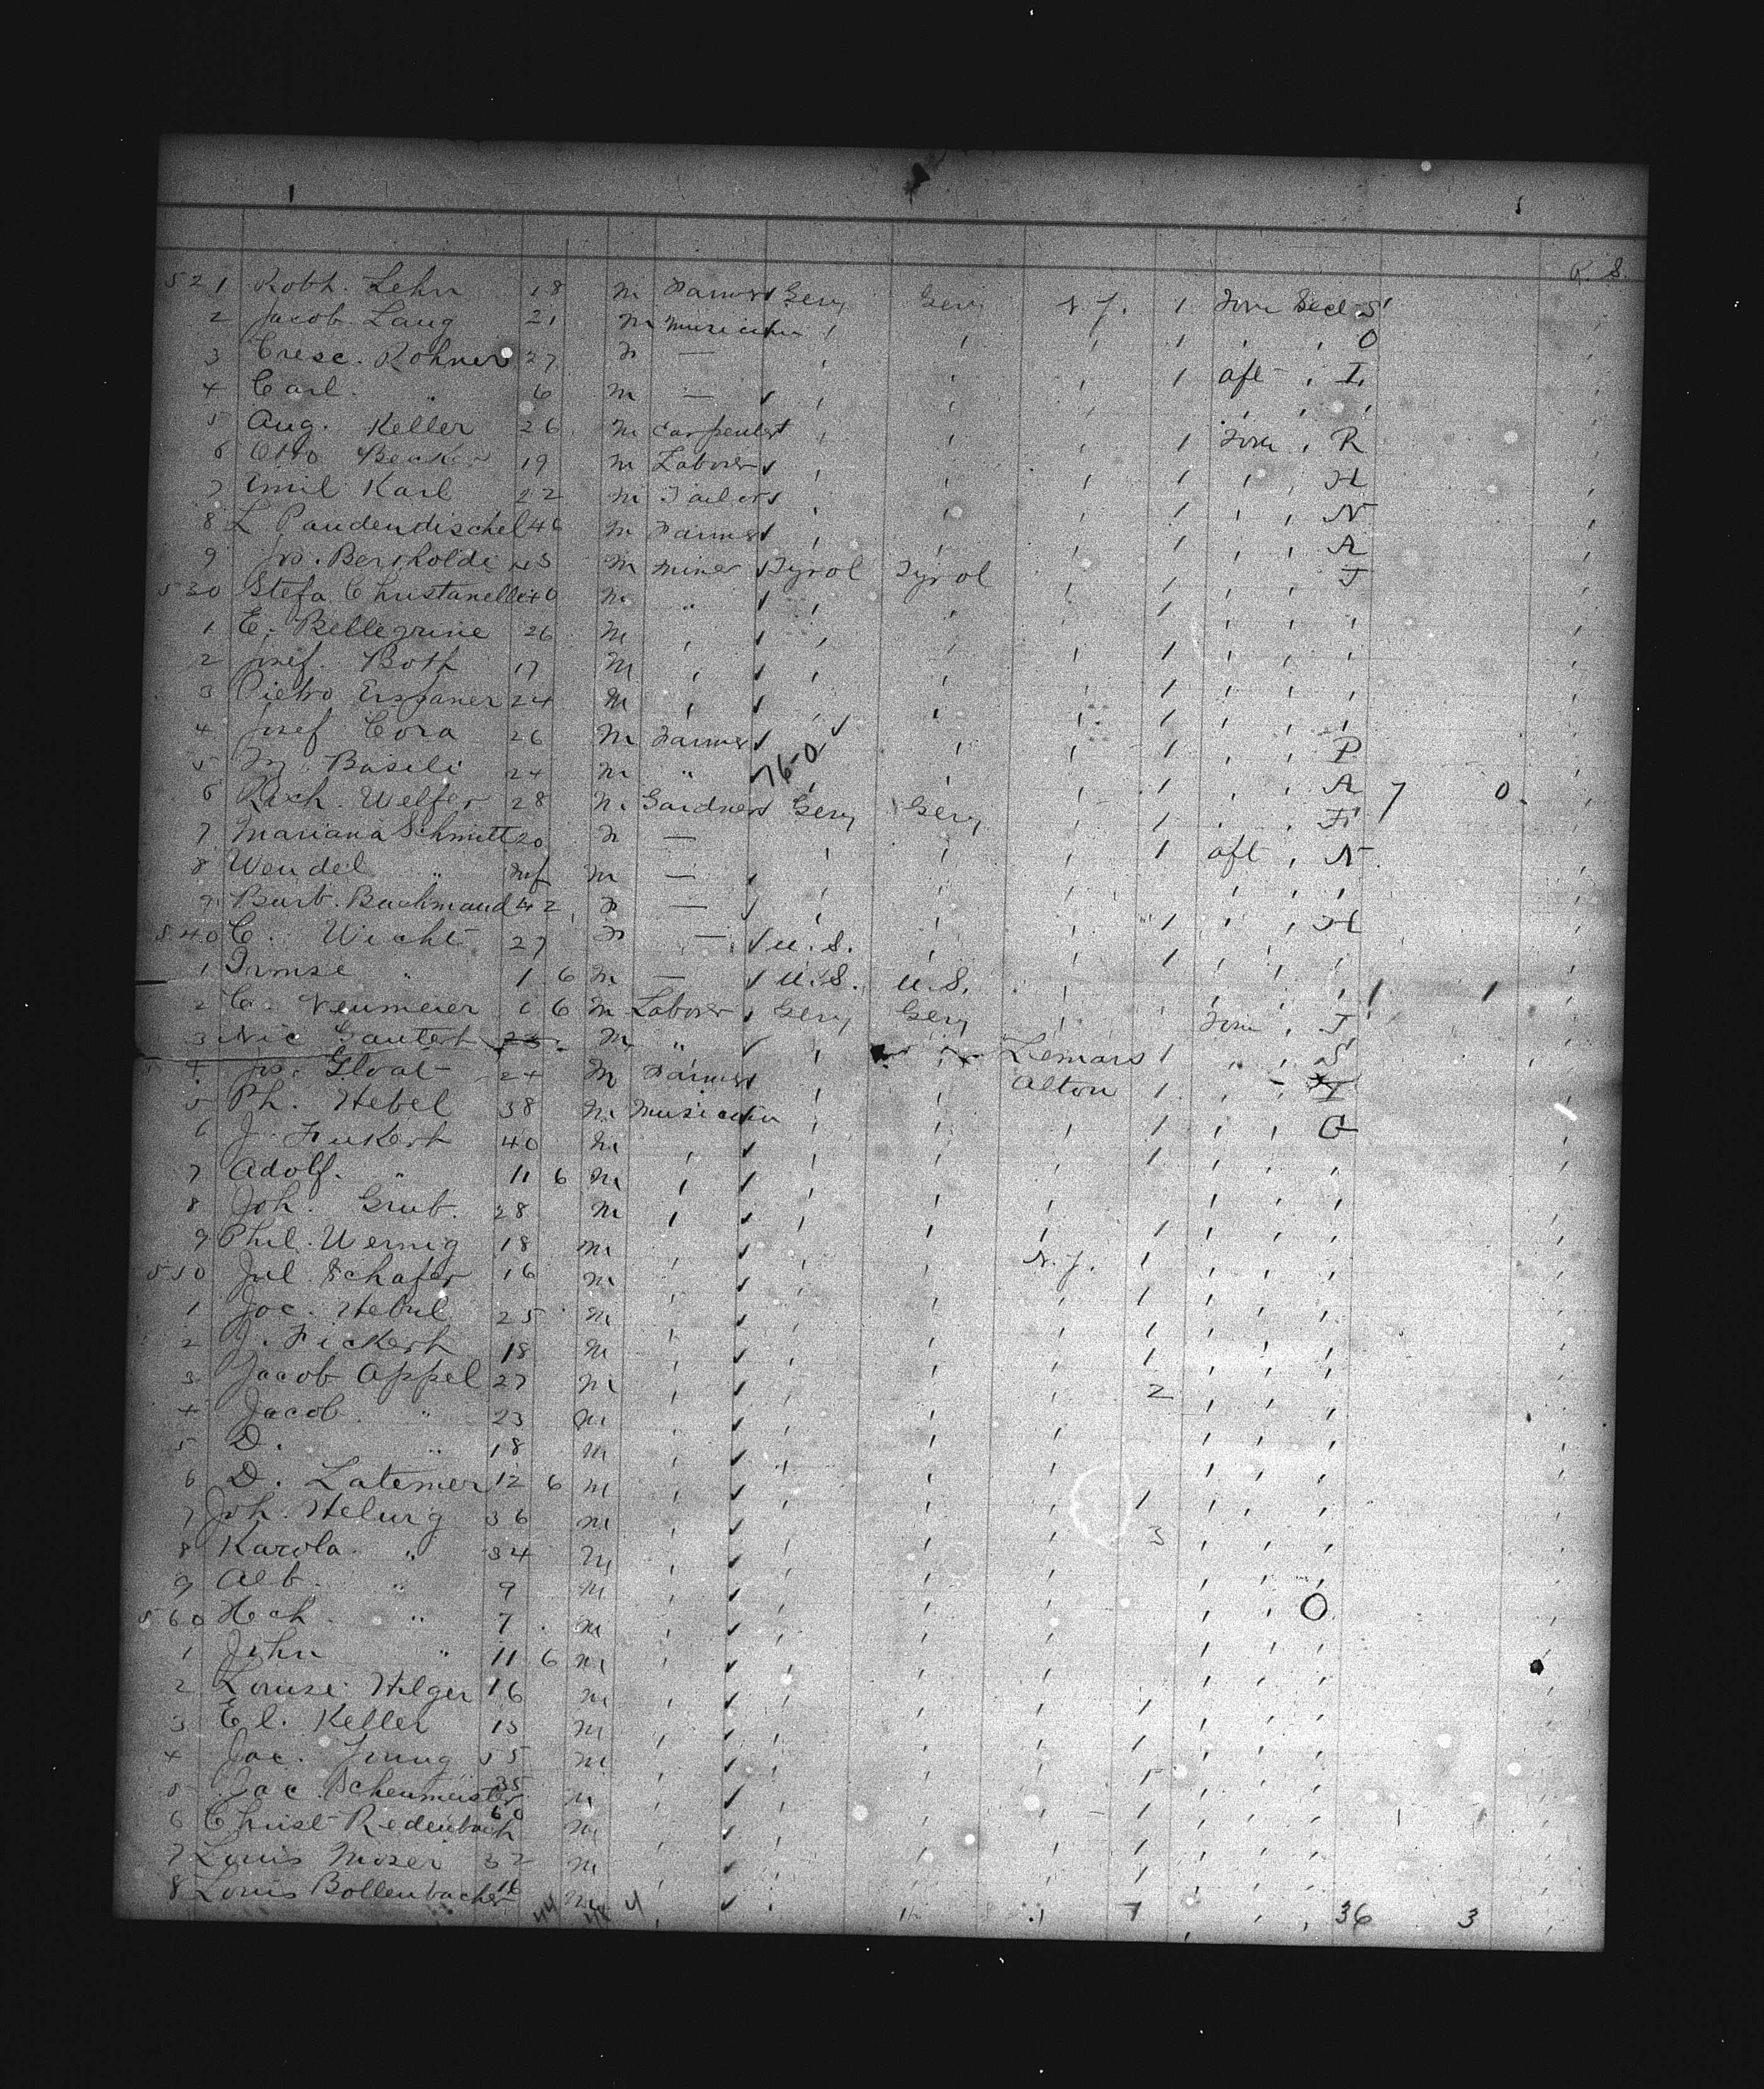 R. S.
521 Robt. Lehn 18 m Farmer Gery Gery N.Y. 1 Form Decl S
2 Jacob Laug 21 m musician , , , 1 , , O
3 Cresc. Rohner 27 — , , , 1 aft , I
4 Carl " 6 m — , , , , , ,
5 Aug. Keller 26 m carpenter , , , 1 Form , R
6 Otto Becker 19 m Laborer , , , 1 , , H
7 Emil Karl 22 m Tailor , , , 1 , , N
8 L Paudendischel 46 m Farmer , , , 1 , , A
9 Jos. Bertholdi 45 m miner Tyrol Tyrol , 1 , , J
530 Stefa Christanelle 40 m " , , , 1 , , ,
1 E. Bellegrine 26 m , , , , 1 , , ,
2 Josef Bott 17 m , , , , 1 , , ,
3 Pietro 24 m , , , , 1 , , ,
4 Josef Cora 26 m Farmer , , , 1 , , P
5 M. Basili 24 m " 76-0 , , , 1 , , A 7 0
6 Rich. Welfer 28 m Gardner Gery Gery , 1 , , F
7 Mariana Schmitt 20 — , , , 1 aft , N
8 Wendel " Inf m — , , , , , ,
9 Barb. Buchmaud 42 — , , , 1 , , H
540 C. Wicht 27 — U.S. , , 1 , , ,
1 " 1 6 m — U.S. U.S. , , , , 1 1
2 C. Neumeier 6 m Laborer Gery Gery , , Form , J
3 Nic Gautert 23 m " , Lemars 1 , , S
4 Jos. Gloat 24 m Farmer , , Alton 1 , ,
5 Ph. Hebel 38 m musician , , , 1 , , G
6 J. Fukert 40 m , , , , 1 , , ,
7 Adolf. " 11 6 m , , , , , , ,
8 Joh. Grub. 28 m , , , , 1 , , ,
9 Phil. Wernig 18 m , , , N.Y. 1 , , ,
550 Jul Schafer 16 m , , , , 1 , , ,
1 Joc. Hebel 25 m , , , , 1 , , ,
2 J. Fickert 18 m , , , , 1 , , ,
3 Jacob Appel 27 m , , , , 2 , , ,
4 Jacob " 23 m , , , , , , ,
5 D. " 18 m , , , , , , ,
6 D. Latemer 12 6 m , , , , 1 , , ,
7 Joh. Helurg 36 m , , , , 3 , , ,
8 Karola " 34 m , , , , , , ,
9 Alb. " 9 m , , , , , , O
560 Hch. " 7 m , , , , , , ,
1 John " 11 6 m , , , , , , ,
2 Louise Hilger 16 m , , , , 1 , , ,
3 El. Keller 15 m , , , , 1 , , ,
4 Jac. Jung 55 m , , , , 1 , , ,
5 Jac. Scheumeister 35 m , , , , 1 , , ,
6 Christ Redenbach 60 m , , , , 1 , , ,
7 Louis Moser 32 m , , , , 1 , , ,
8 Louis Bollenbacher 16 m , , , , , , ,
44 48 4 7 36 3